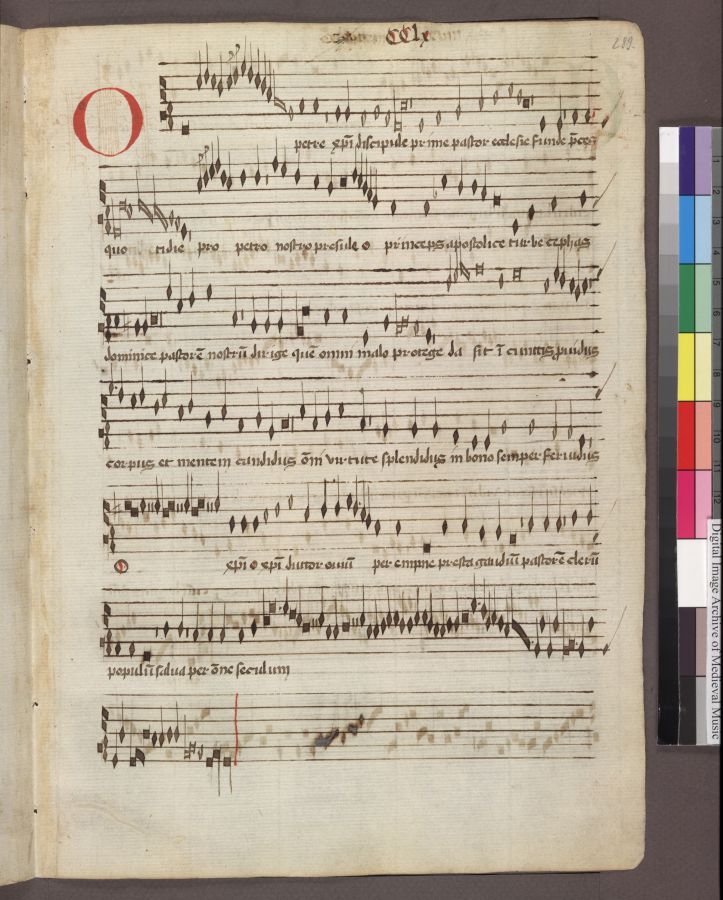 CClx
289
O
petre xp̄i discipule prime pastor ecclesie funde p̄ces
quo tidie pro petro nostro presule o princeps apostolice turbe cephas
dominice pastorē nostrū dirige quē omni malo protege da sit ī cunctis ꝓuidus
corpus et mentem candidus ōi virtute splendidus in bono semper feruidus
O xp̄i o xp̄i ductor ouiū per empne presta gaudiū pastorē clerū
populū salua per ōne seculum
Digital Image Archive of Medieval Music